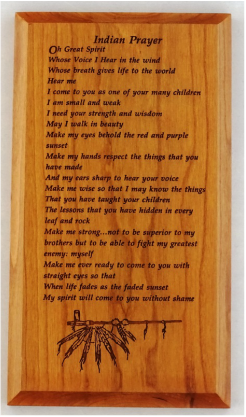 Indian Prayer
Oh Great Spirit
Whose Voice I Hear in the wind
Whose breath gives life to the world
Hear me
I come to you as one of your many children
I am small and weak
I need your strength and wisdom
May I walk in beauty
Make my eyes behold the red and purple
sunset
Make my hands respect the things that you
have made
And my ears sharp to hear your voice
Make me wise so that I may know the things
That you have taught your children
The lessons that you have hidden in every
leaf and rock
Make me strong...not to be superior to my
brothers but to be able to fight my greatest
enemy: myself
Make me ever ready to come to you with
straight eyes so that
When life fades as the faded sunset
My spirit will come to you without shame